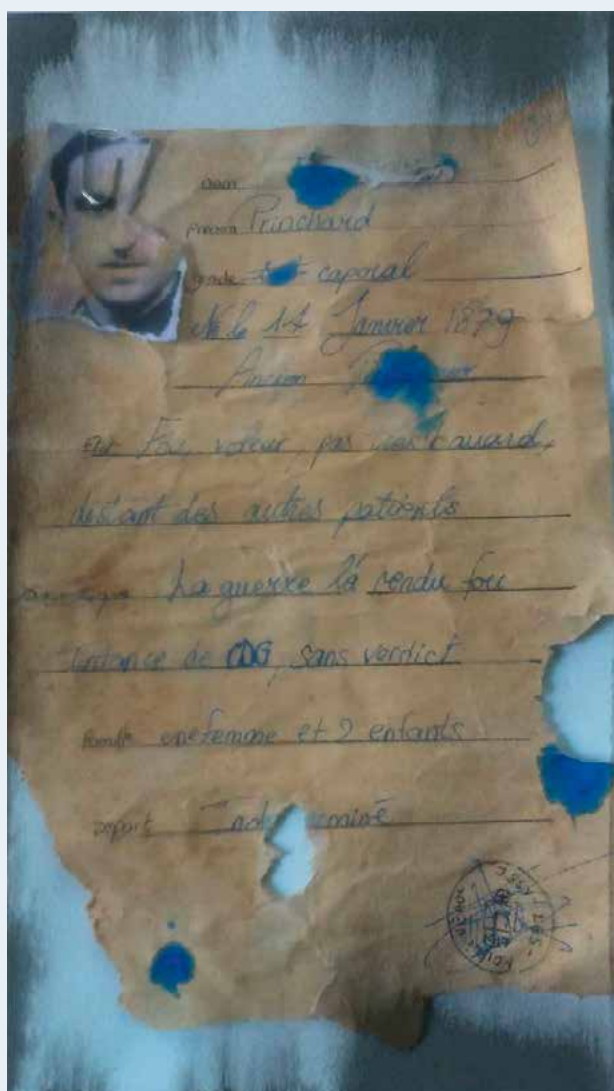 Nom
Prenom Princhard
Grade caporal
Né le 14 Janvier 1879
Ancien
Etat Fou, voleur, pas très bavard,
distant des autres patients
La guerre l'à rendu fou
instance de CDG, sans verdict
Famille une femme et 2 enfants
Depart